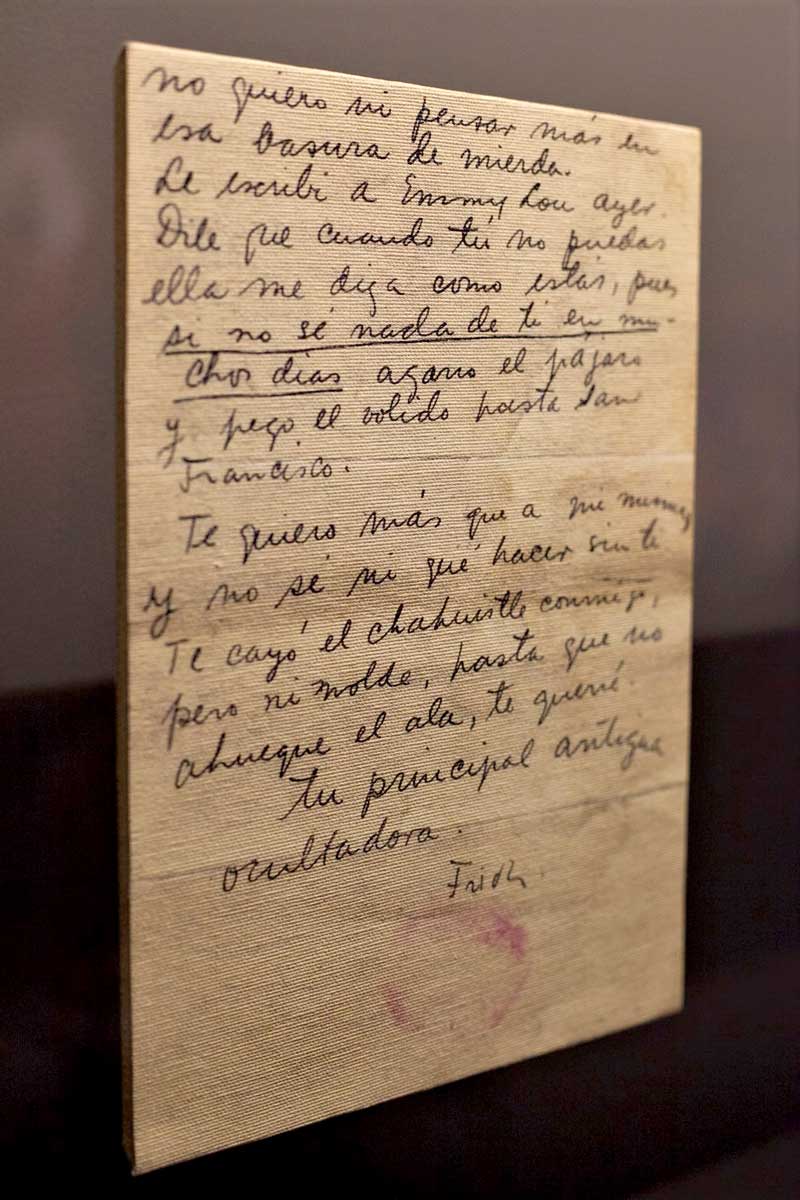 no quiero ni pensar más en
esa basura de mierda.
Le escribi a Emmy Lou ayer.
Dile que cuando tú no puedas
ella me diga como estás, pues
si no sé nada de ti en mu-
chos dias agarro el pájaro
y pego el volido hasta San
Francisco.
Te quiero más que a mi misma,
y no sé ni qué hacer sin ti
Te cayó el chahuistle conmigo,
pero ni molde, hasta que no
ahueque el ala, te querré.
tu principal antigua
ocultadora.
Frida